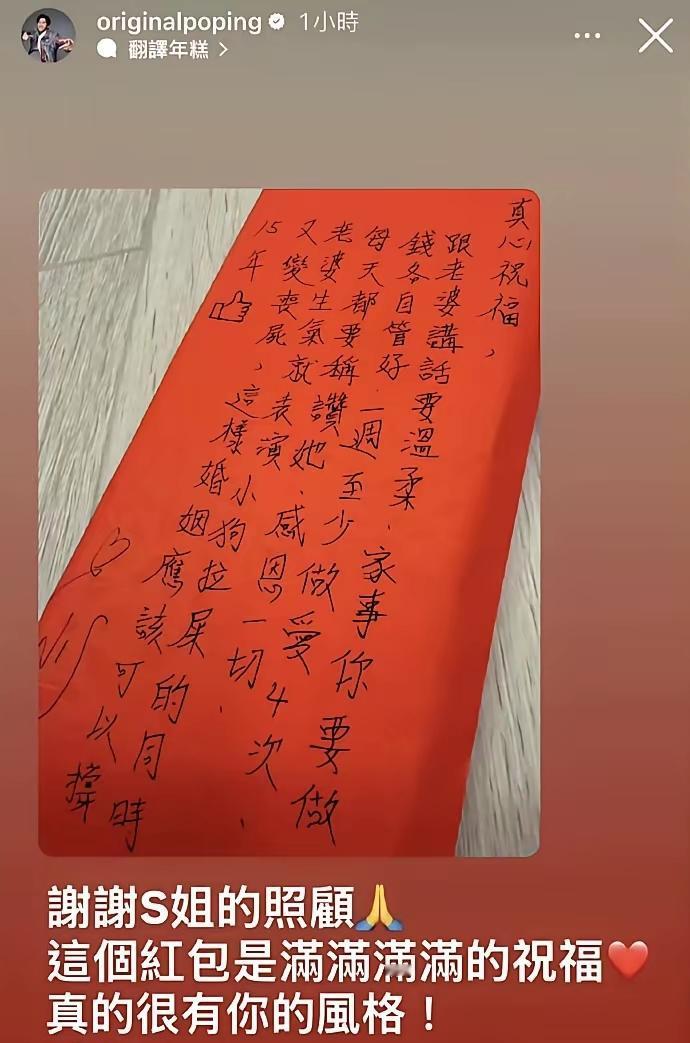 originalpoping 1小時
翻譯年糕 >
真心祝福，
跟老婆講話要溫柔、家事你要做、
錢各自管好、一週至少做愛4次、
每天都要稱讚她、感恩一切、
老婆生氣就表演小狗拉屎的同時
又變喪屍，這樣婚姻應該可以撐
15年👍
謝謝S姐的照顧🙏
這個紅包是滿滿滿滿的祝福❤️
真的很有你的風格！